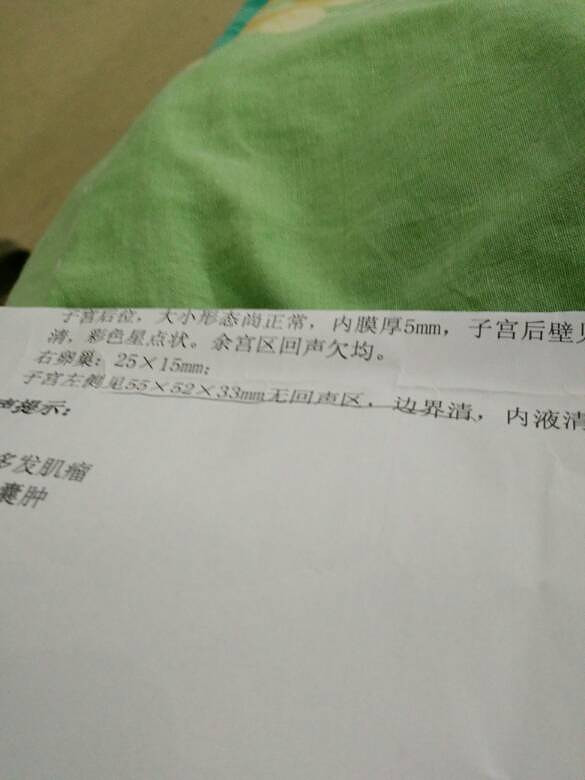 子宫后位，大小形态尚正常，内膜厚5mm，子宫后壁见
清，彩色星点状。余宫区回声欠均。
右卵巢：25×15mm；
子宫左侧见55×52×33mm无回声区，边界清，内液清
声提示：
多发肌瘤
囊肿